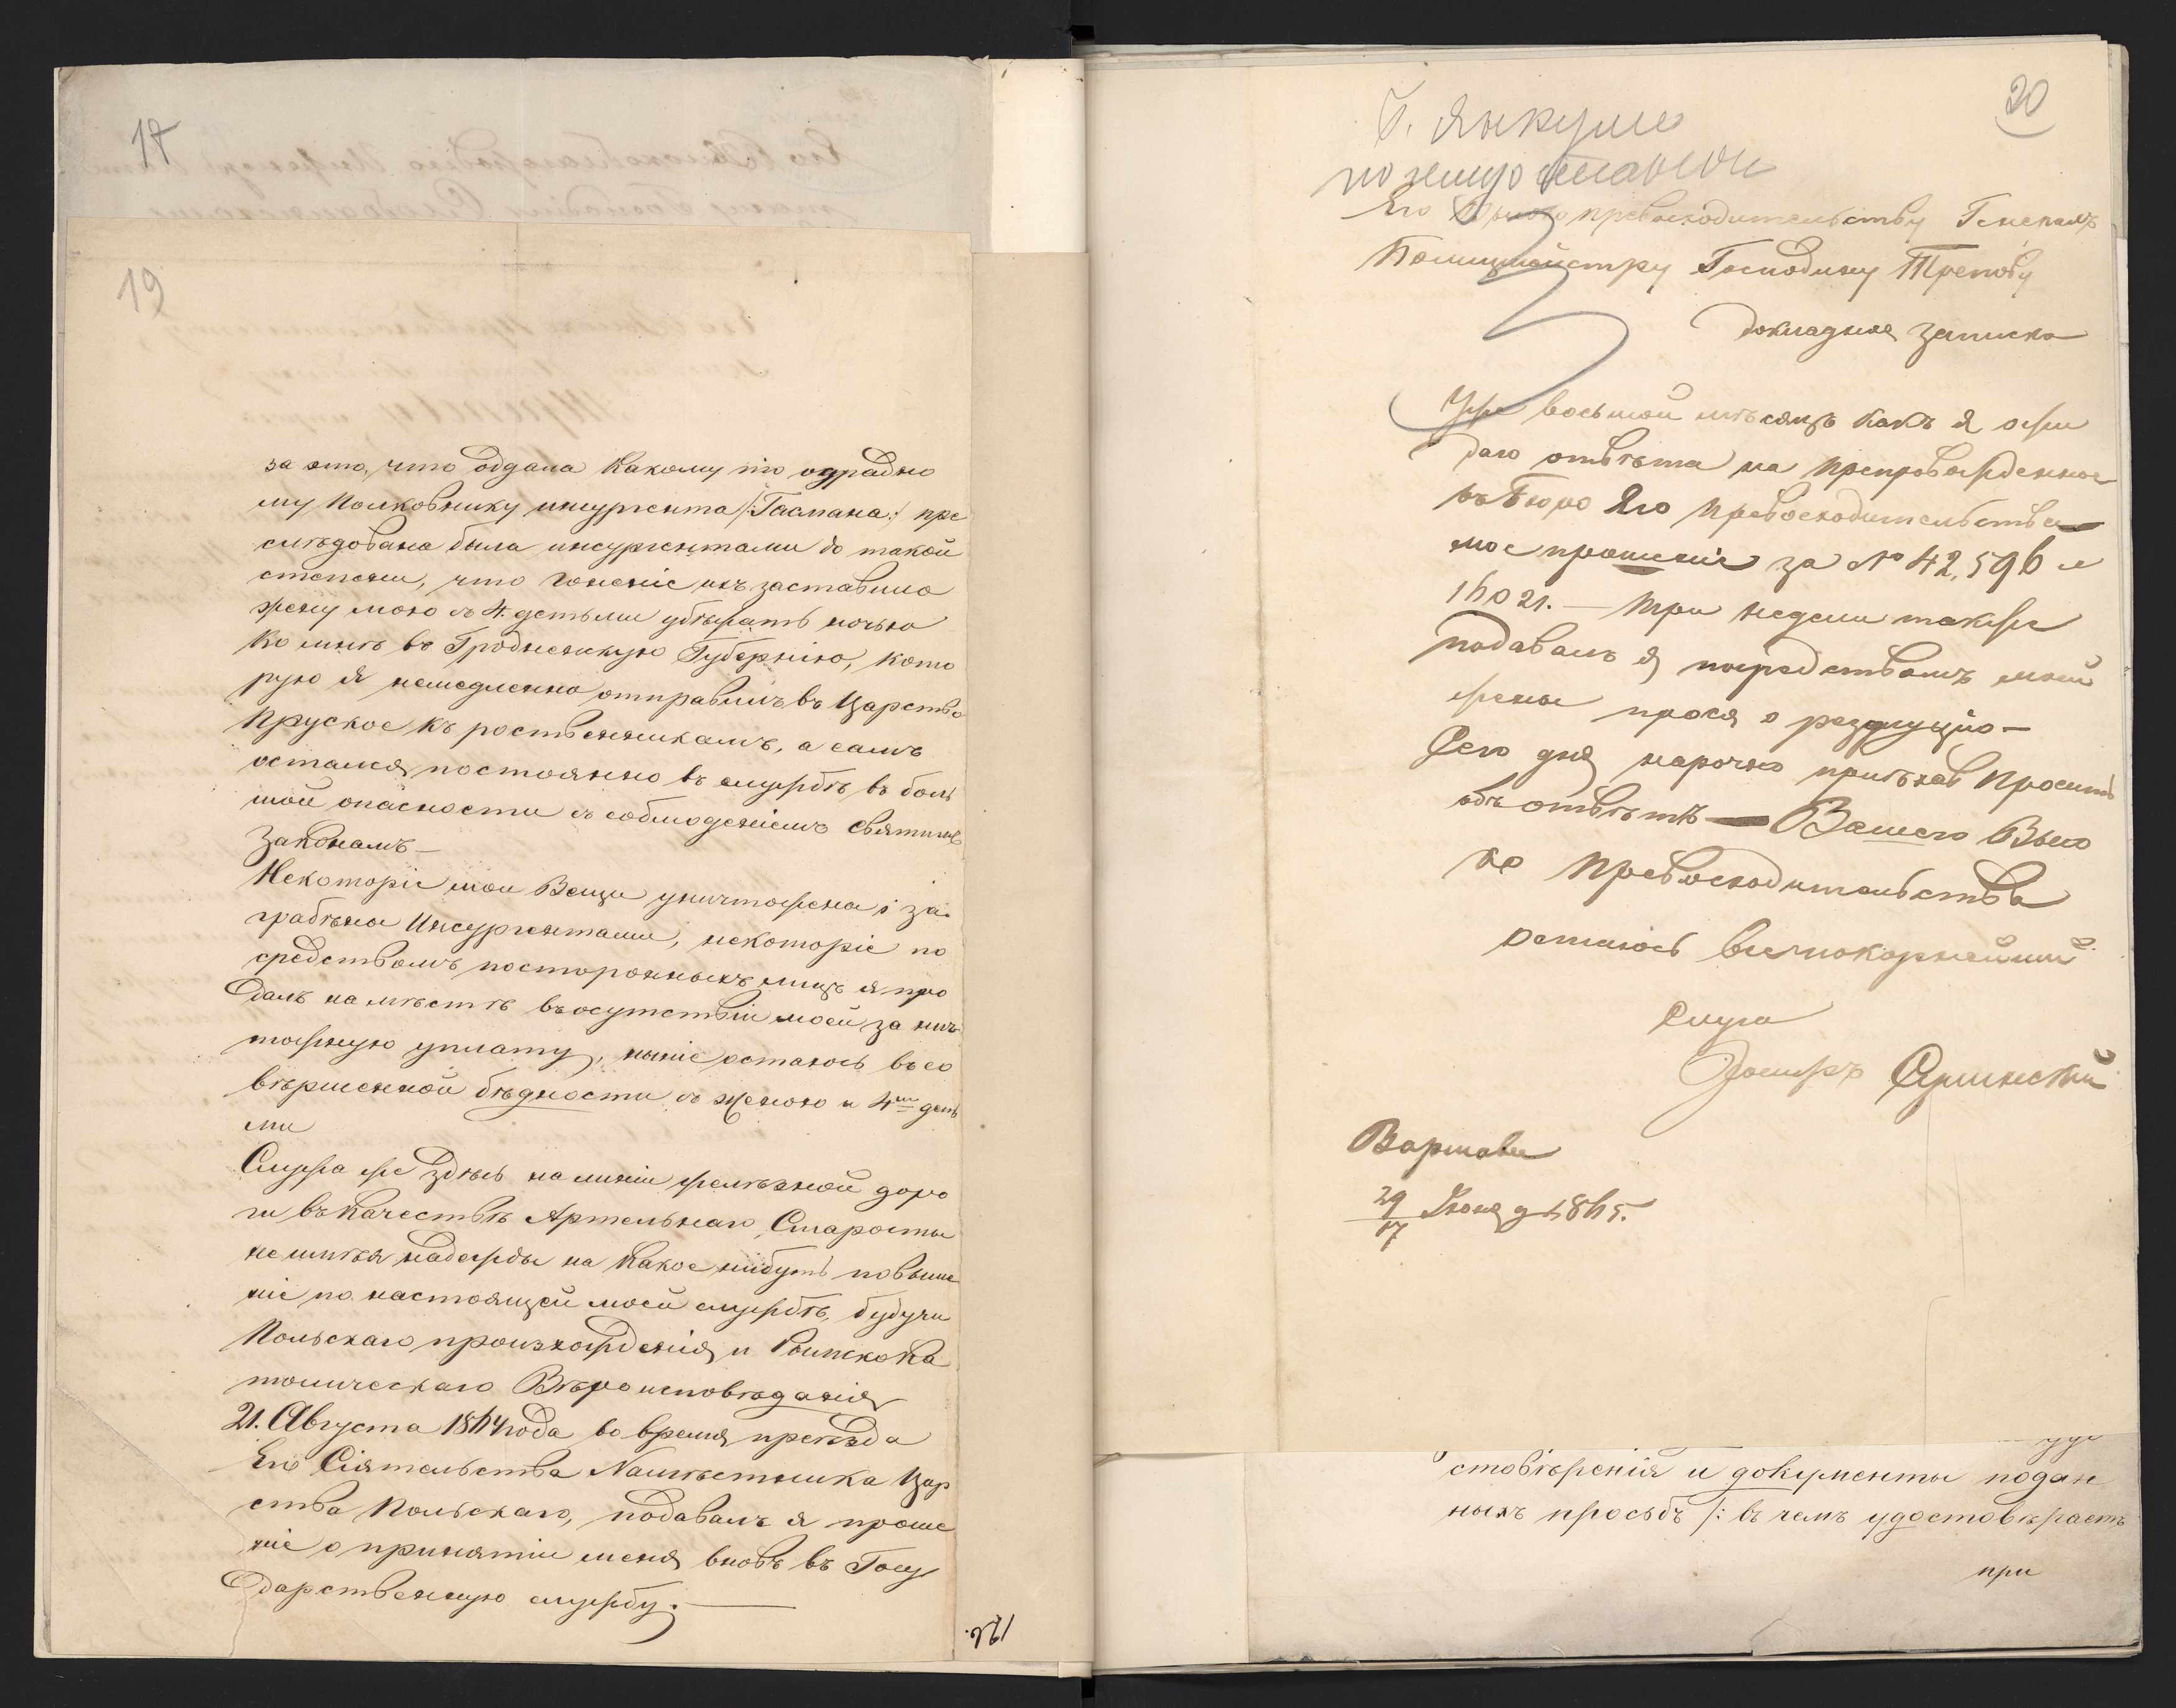 17
19
за это, что одала какому то отрадно
му Полковнику инсургента /:Гасмана:/ пре
слѣдована была инсургентами до такой
степени, что гоненіе ихъ заставило
жену мою съ 4. детьми убѣжать ночью
ко мнѣ въ Гродненскую Губернію, кото
рую я немедленно отправилъ въ Царство
Пруское къ роственникамъ, а самъ
остался постоянно въ службѣ въ боль
шой опасности съ соблюденіемъ святымъ
законамъ —
Некоторіе мои Вещи уничтожена і за
граблена Инсургентами, некоторіе по
средствомъ посторонныхъ лицъ я про
далъ на мѣстѣ въ осутствіи моей за нич
тожную уплату, ныніе остаюсь въ со
вѣршенной бѣдности съ женою и 4ми деть
ми
Служа же здѣсь на линіи желѣзной доро
ги въ качествѣ Артельнаго Старосты
не имѣя надежды на какое нибудь повыше
ніе по настоящей моей службѣ, будучи
Польскаго произхожденія и Римско Ка
толическаго Вѣроисповѣданія
21. Августа 1864 года во время преѣзда
Его Сіятельства Намѣстника Цар
ства Польскаго, подавалъ я проше
ніе о принятіи меня вновь въ Госу
дарственную службу. —
20
Его превосходительству Генералъ
Полицмейстру Господину Трепову
Докладная записка
Уже восьмой мѣсяцъ какъ я ожи
даю отвѣта на препровожденное
въ Бюро Его превосходительства
мое прошеніе за № 42,596 и
16021. — Три недели также
подавалъ я посредствомъ моей
жены прося о резолуцію —
Сего дня нарочно приѣхав просить
объ отвѣтѣ — Вашего Высо
ко Превосходительства
остаюсь
слуга
Варшава
29/17 Іюня д 1865.
стовѣренія и документы подан
ныхъ просьбъ /: въ чемъ удостовѣраетъ
при